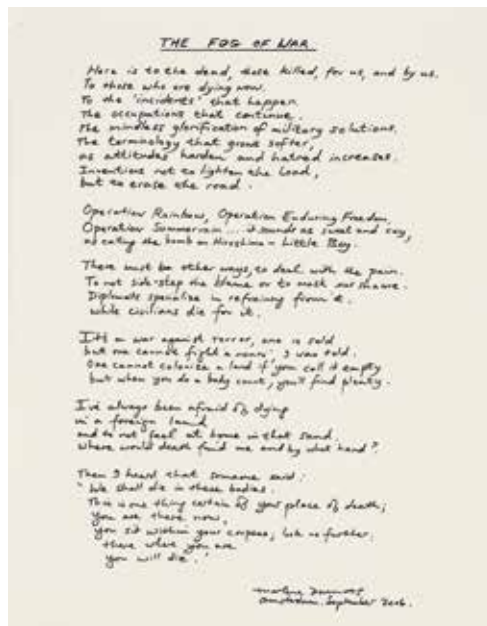 THE FOG OF WAR
Here is to the dead, those killed, for us, and by us.
To those who are dying now.
To the 'incidents' that happen.
The occupations that continue.
The mindless glorification of military solutions.
The terminology that grows softer,
as attitudes harden and hatred increases.
Inventions not to lighten the load,
but to erase the road.
Operation Rainbow, Operation Enduring Freedom,
Operation Summerrain... it sounds as sweet and cosy,
as calling the bomb on Hiroshima – Little Boy.
There must be other ways, to deal with the pain.
To not side-step the blame or to mask our shame.
Diplomats specialise in refraining from it.
while civilians die for it.
It's a war against terror, one is told
but one cannot fight a noun, I was told.
One cannot colonize a land if you call it empty
but when you do a body count, you'll find plenty.
I've always been afraid of dying
in a foreign land
and to not feel at home in that sand.
Where would death find me and by what hand?
Then I heard that someone said:
"We shall die in these bodies.
This is one thing certain of your place of death;
You are there now,
you sit within your corpse; look no further.
there where you are
you will die."
Marlene Dumas
Amsterdam, September 2006.